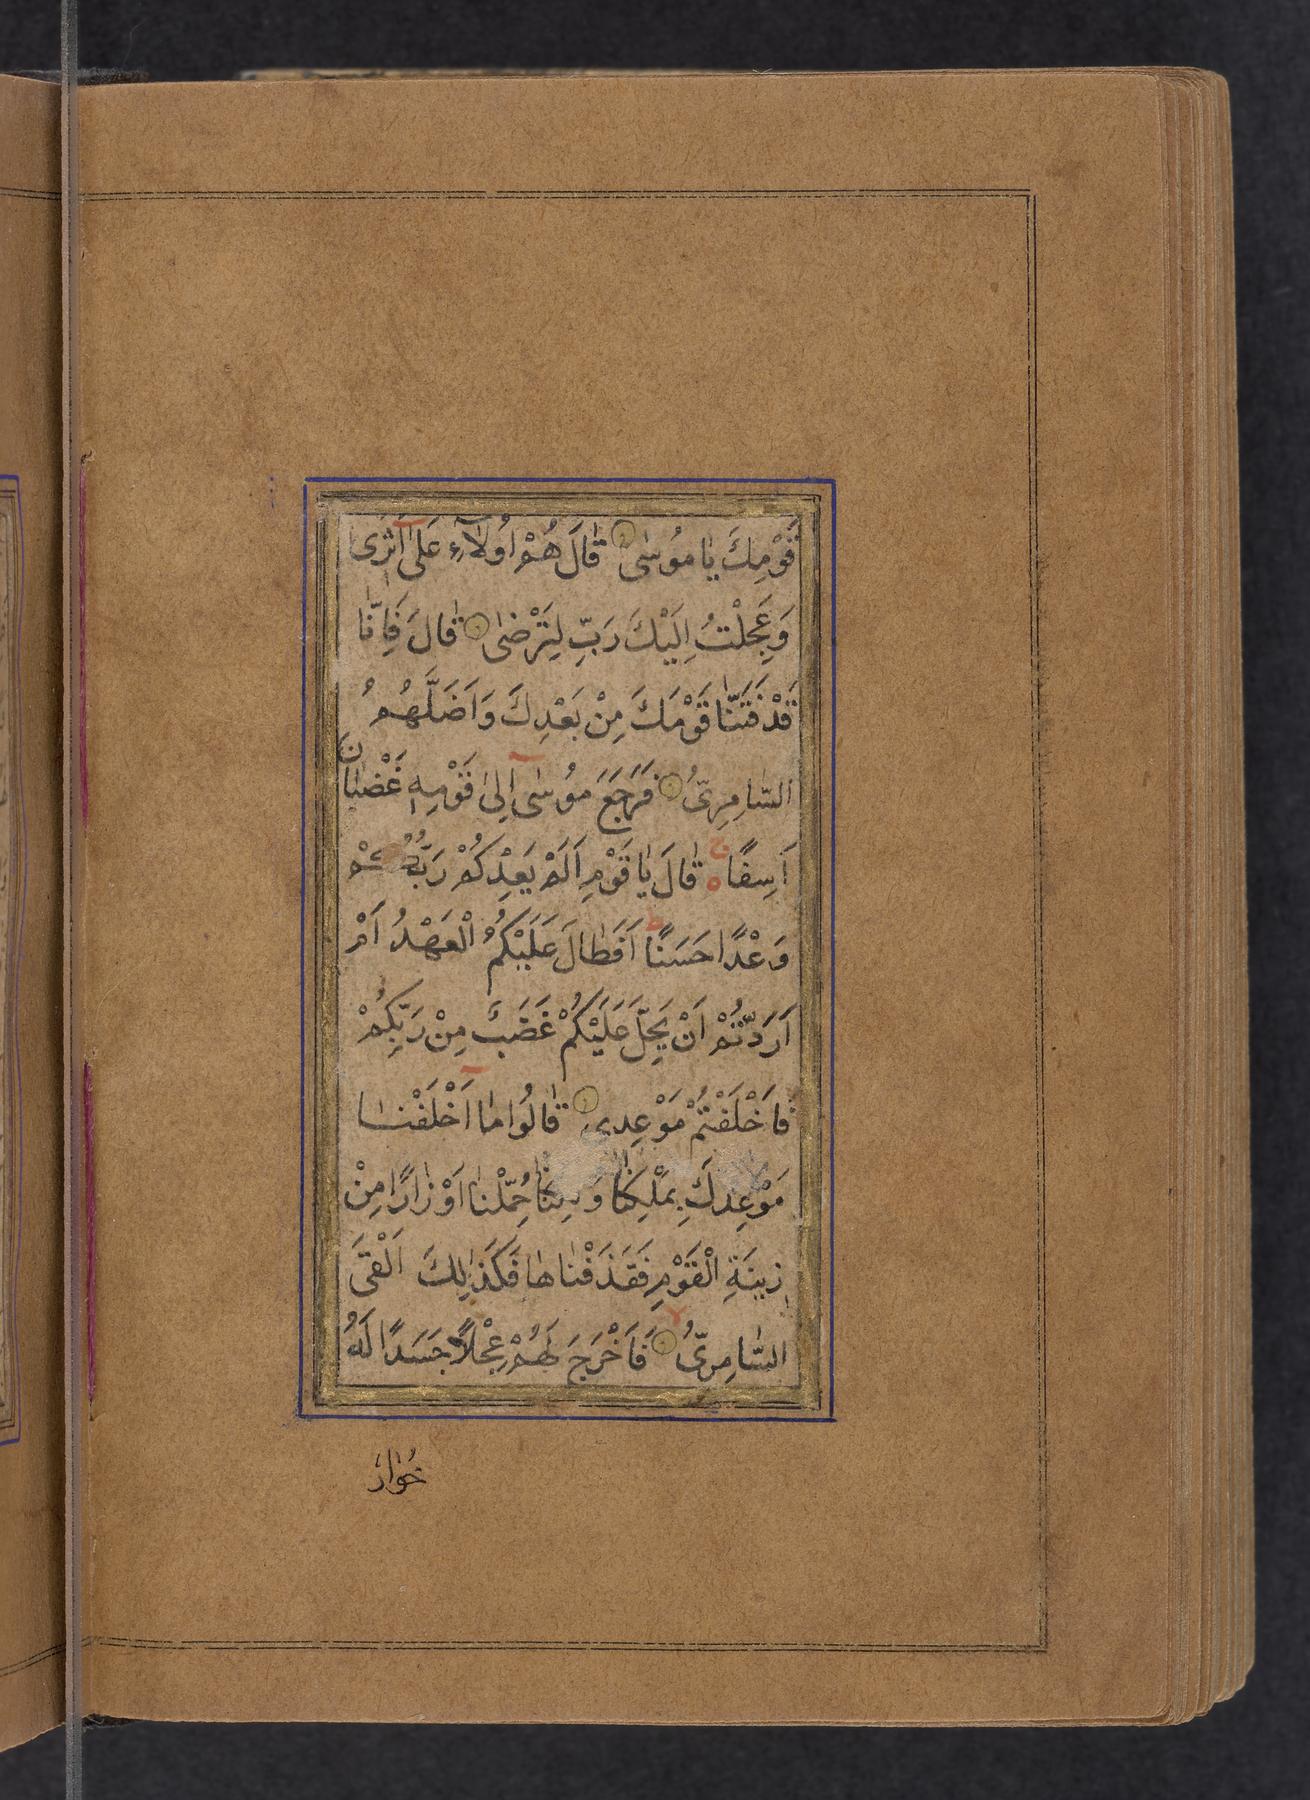 قَوْمِكَ يٰا مُوسٰى قٰالَ هُمْ اُولٰآءِ عَلٰٓى اَثَرٖى
وَعَجِلْتُ اِلَيْكَ رَبِّ لِتَرْضٰى قٰالَ فَاِنّٰا
قَدْ فَتَنّٰا قَوْمَكَ مِنْ بَعْدِكَ وَاَضَلَّهُمُ
السّٰامِرِىُّ فَرَجَعَ مُوسٰٓى اِلىٰ قَوْمِهٖ غَضْبٰانَ
اَسِفًا ج ه قٰالَ يٰا قَوْمِ اَلَمْ يَعِدْكُمْ رَبُّكُمْ
وَعْدًا حَسَنًا ط اَفَطٰالَ عَلَيْكُمُ الْعَهْدُ اَمْ
اَرَدْتُّمْ اَنْ يَحِلَّ عَلَيْكُمْ غَضَبٌ مِنْ رَبِّكُمْ
فَاَخْلَفْتُمْ مَوْعِدى قٰالُوا مٰٓا اَخْلَفْنٰا
مَوْعِدَكَ بِمَلْكِنٰا وَ حُمِّلْنٰا اَوْزٰارًا مِنْ
زِينَةِ الْقَوْمِ فَقَذَفْنٰاهٰا فَكَذٰلِكَ اَلْقَى
السّٰامِرِىُّ لا فَاَخْرَجَ لَهُمْ عِجْلاً جَسَدًا لَهُ
خُوٰارٌ